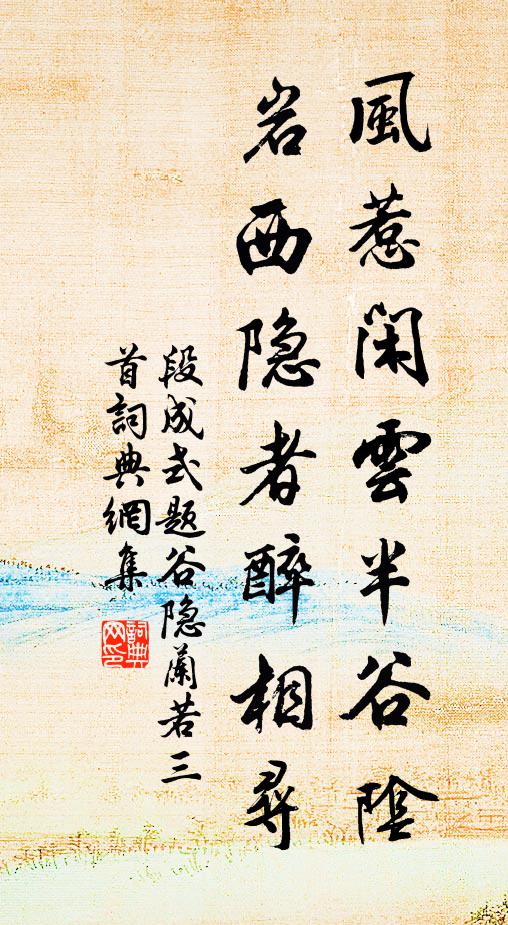 風惹闲雲半谷陰
岩西隐者醉相尋
段成式题谷隐蘭若三
首詞典網集
詞典
网印